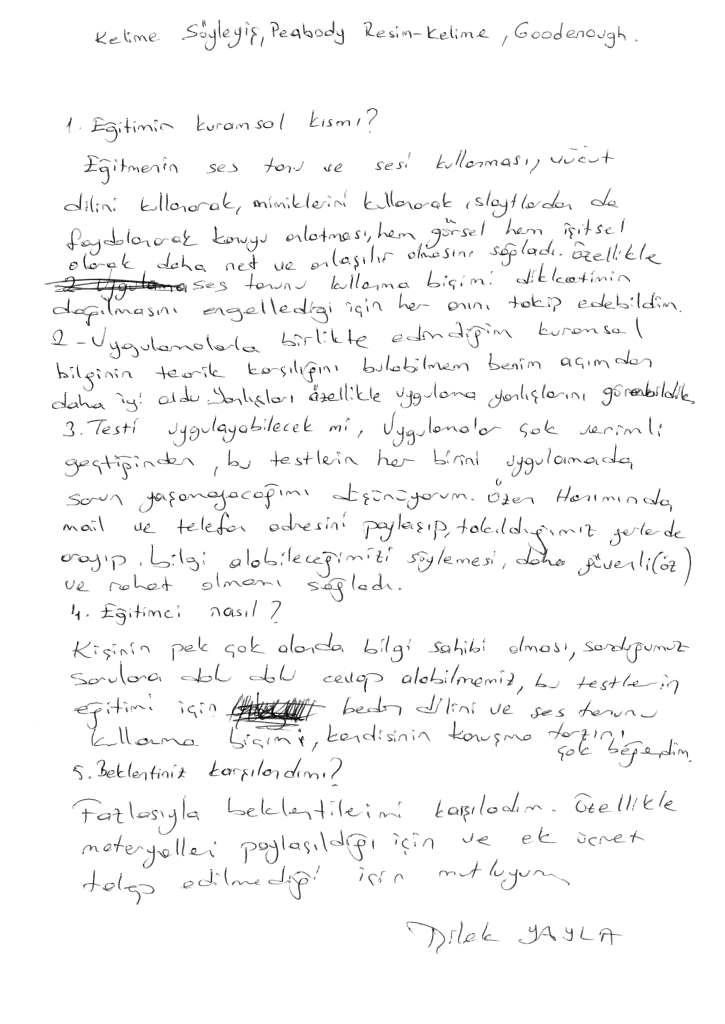 Kelime Söyleyiş, Peabody Resim-Kelime, Goodenough.
1. Eğitimin kuramsal kısmı?
Eğitmenin ses tonu ve sesi kullanması, vücut
dilini kullanarak, mimiklerini kullanarak, slaytlardan da
faydalanarak konuyu anlatması, hem görsel hem işitsel
olarak daha net ve anlaşılır olmasını sağladı. Özellikle
ses tonunu kullanma biçimi dikkatimin
dağılmasını engellediği için her anını takip edebildim.
2 - Uygulamalarla birlikte edindiğim kuramsal
bilginin teorik karşılığını bulabilmem benim açımdan
daha iyi oldu. Yanlışları özellikle uygulama yanlışlarını görebildik
3. Testi uygulayabilecek mi, Uygulamalar çok verimli
geçtiğinden, bu testlerin her birini uygulamada
sorun yaşamayacağımı düşünüyorum. Özen Hanımında,
mail ve telefon adresini paylaşıp, takıldığımız yerlerde
arayıp bilgi alabileceğimizi söylemesi, daha güvenli (öz)
ve rahat olmamı sağladı.
4. Eğitimci nasıl?
Kişinin pek çok alanda bilgi sahibi olması, sorduğumuz
sorulara cevap alabilmemiz, bu testlerin
eğitimi için beden dilini ve ses tonunu
kullanma biçimi, kendisinin konuşma tarzını
çok beğendim.
5. Beklentiniz karşılandımı?
Fazlasıyla beklentilerimi karşıladım. Özellikle
materyaller paylaşıldığı için ve ek ücret
talep edilmediği için mutluyum
Dilek YAYLA